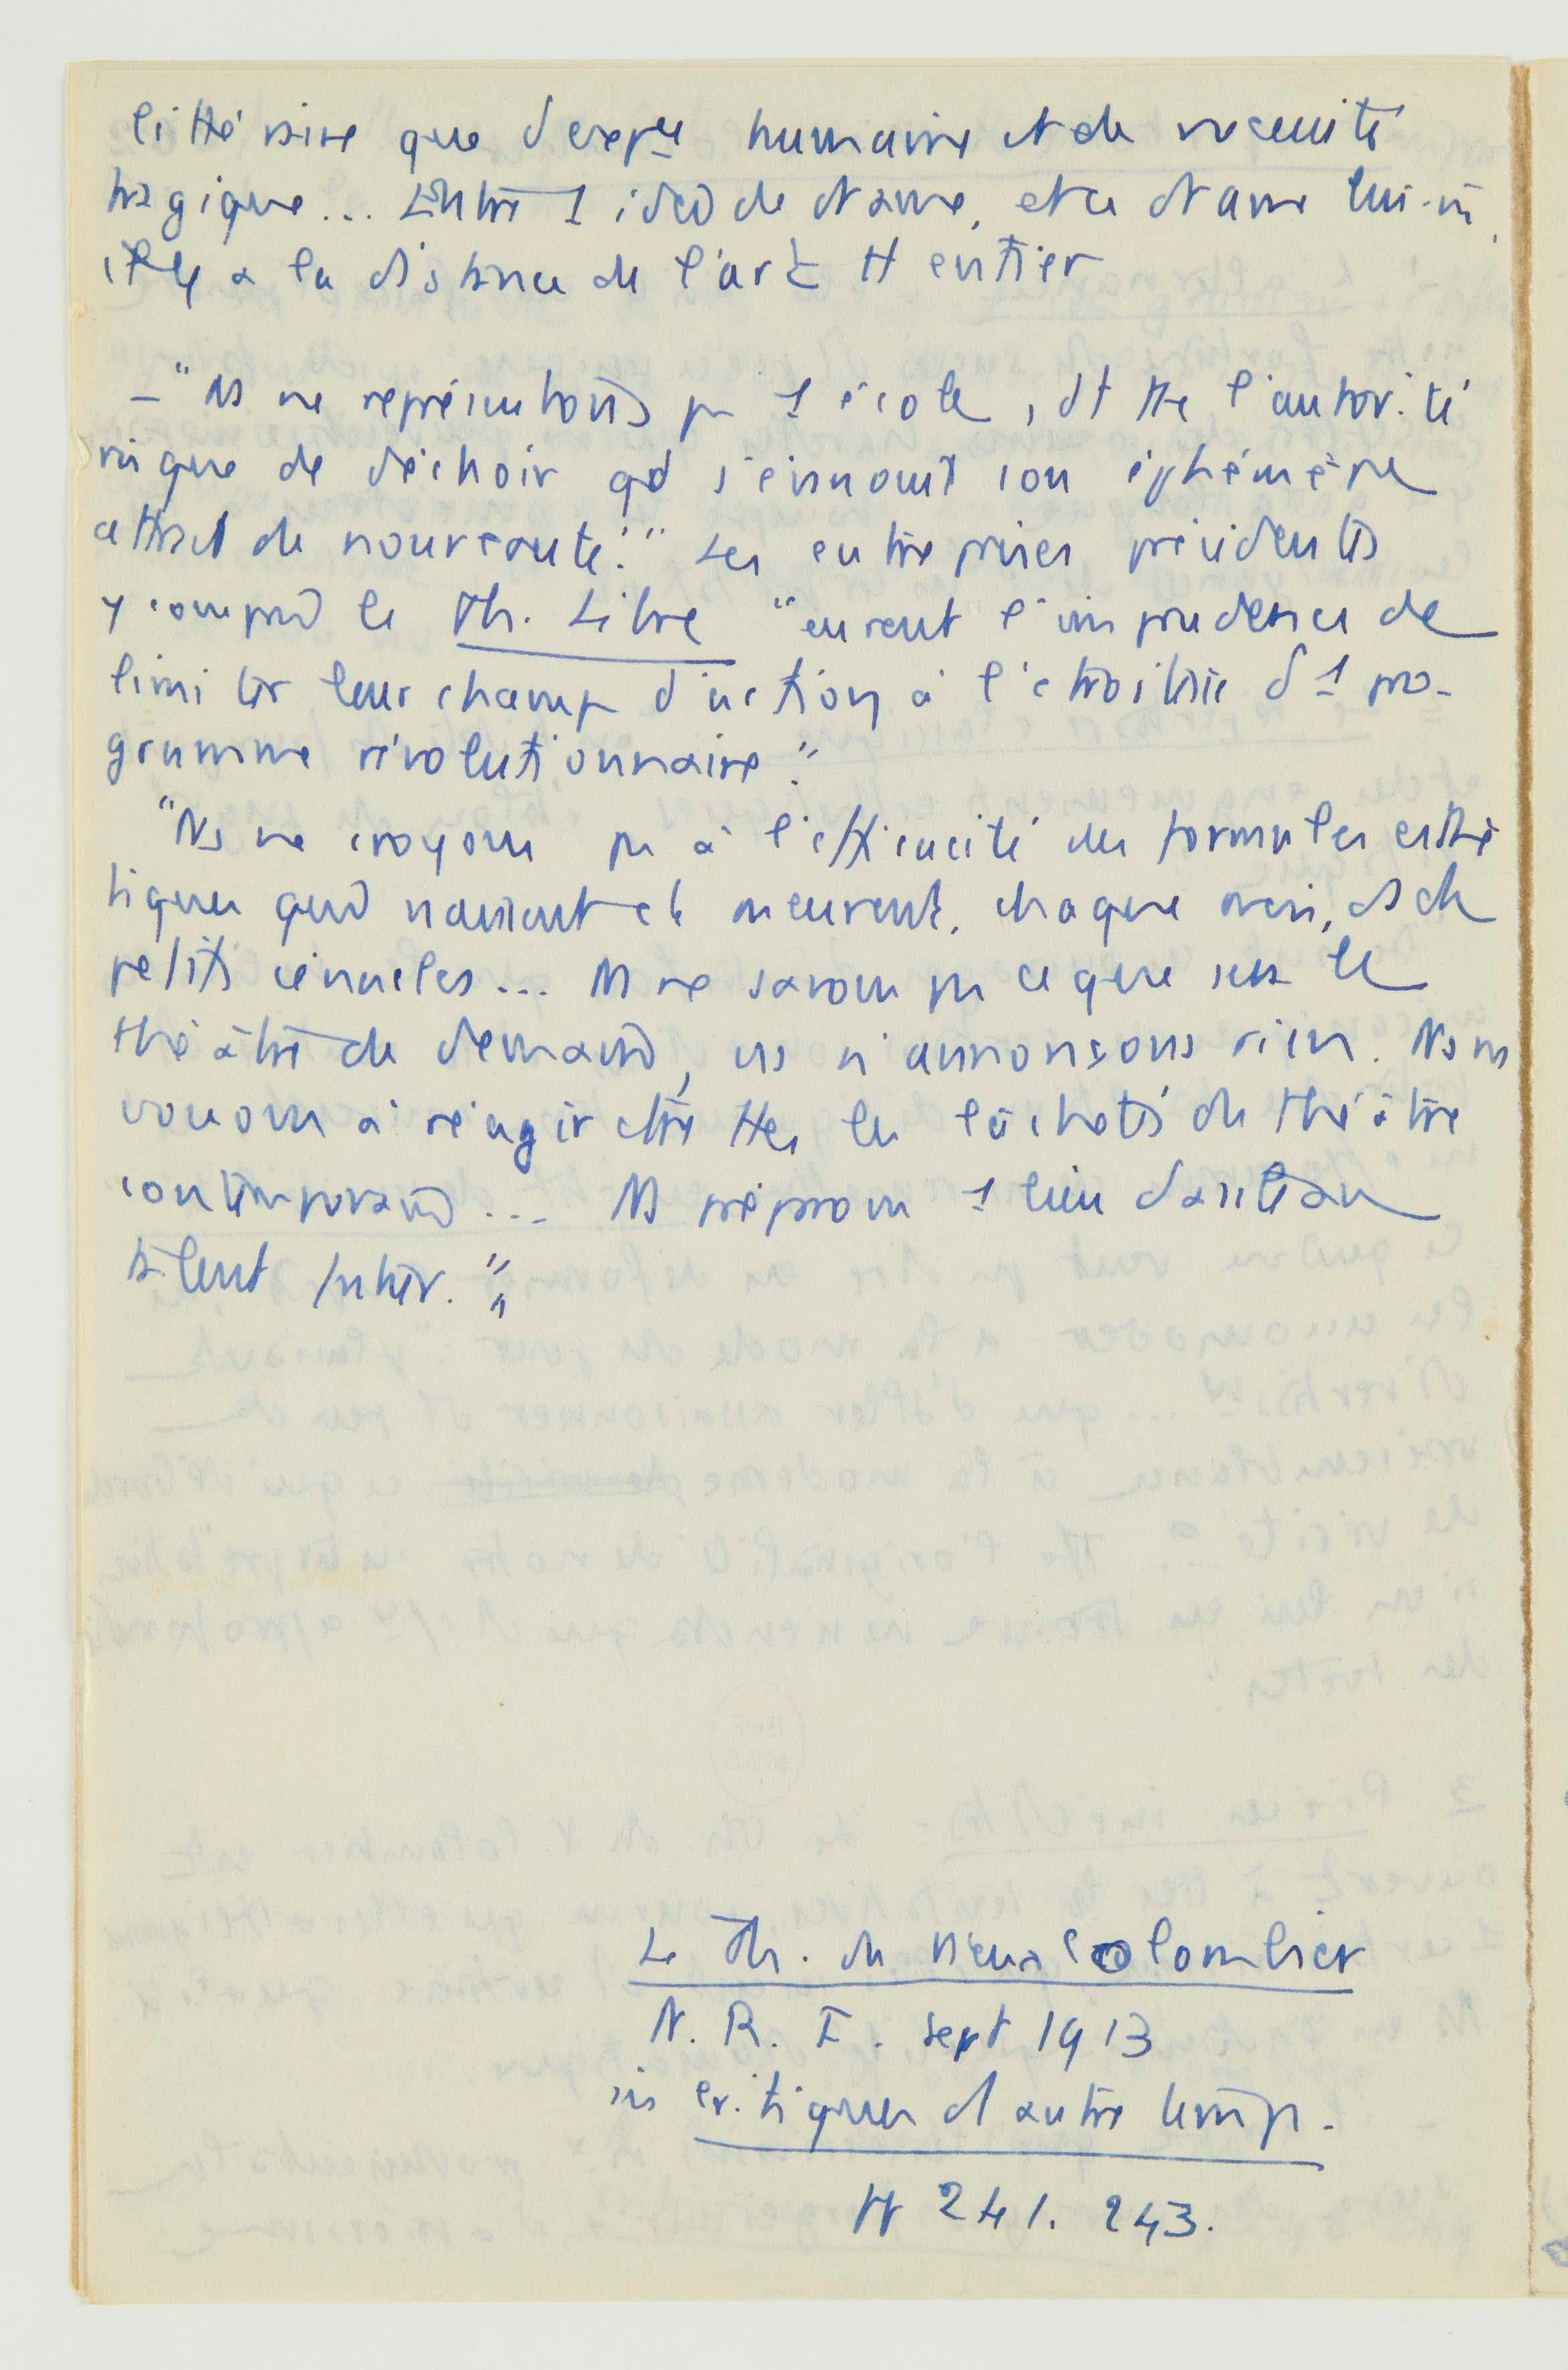 littéraire que d'expce humaine et de nécessité
tragique... Entre 1 idée de drame, et ce drame lui-m̄,
il y a la distance de l'art tt entier
– "Ns ne représentons pas 1 école, dt tte l'autorité
risque de déchoir qd s'évanouit son éphémère
attrait de nouveauté." Les entreprises précédentes
y compris le Th. Libre "eurent l'imprudence de
limiter leur champ d'action à l'étroitesse d'1 pro-
gramme révolutionnaire."
"Ns ne croyons pas à l'efficacité des formules esthé
tiques qui naissent et meurent, chaque mois, ds de
petits cénacles... Ns ne savons pas ce que sera le
théâtre de demain, ns n'annonçons rien. Ns ns
vouons à réagir ctre ttes les lâchetés du théâtre
contemporain... Ns préparons 1 lieu d'asile au
talent futur."
Le Th. du Vieux Colombier
N. R. F. sept 1913
in Critiques d'1 autre temps.
pp 241. 243.